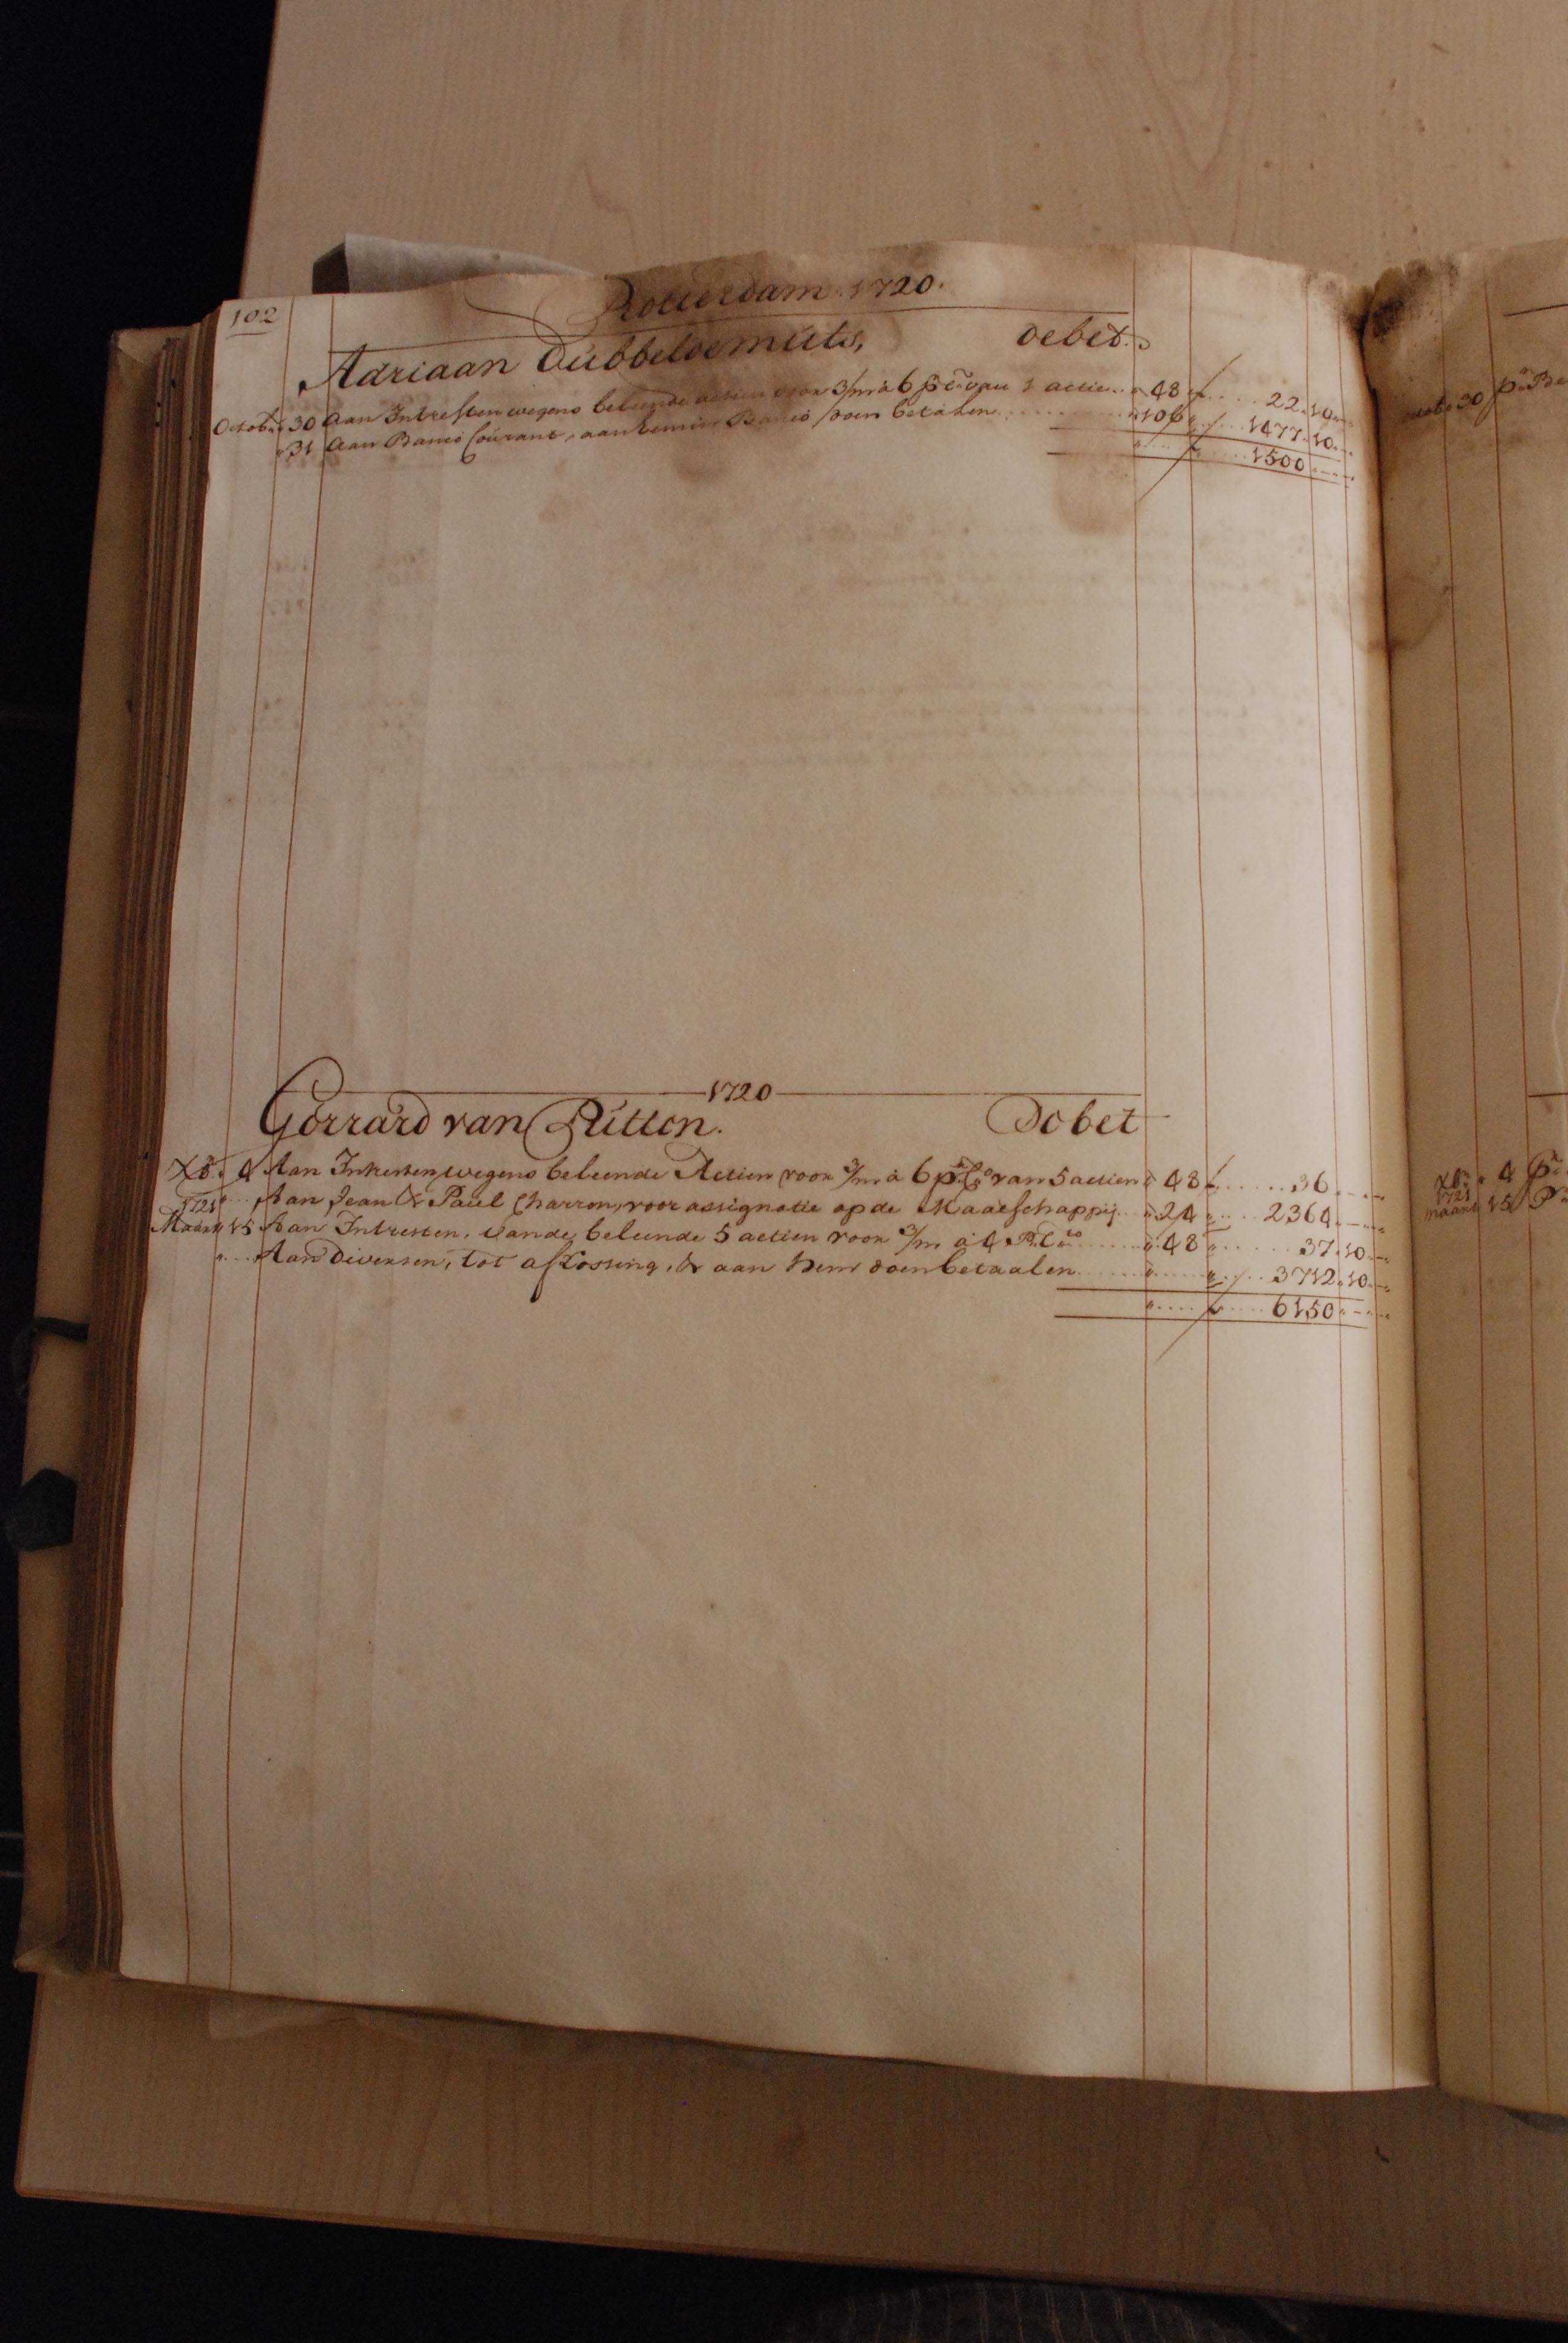 102
Rotterdam 1720.
Adriaan Dubbeldemuts, debet.
Octobr 30 Aan Intresten wegens beleende actien voor 3/m à 6 pr Co van 1 actie .. 48 f .... 22.10.—
31 Aan Banco Courant, aan hem in Banco doen betalen ........ 106 .... 1477.10.—
.... 1500.—
1720
Gerrard van Putten. Debet
Xbr 4 Aan Intresten wegens beleende Actien voor 3/m à 6 pr Co van 5 actien 48 f ...... 36.—
1721 Aan Jean & Paul Charron, voor assignatie op de Maatschappij .. 24 .... 2364.—
Maart 15 Aan Intresten, vande beleende 5 actien voor 3/m à 4 Pr Cto ...... 48 ...... 37.10.—
Aan Diversen, tot aflossing, & aan hem doen betaalen ........ 3712.10.—
.... 6150.—
30 pr
Xbr 4 pr
1721
maart 15